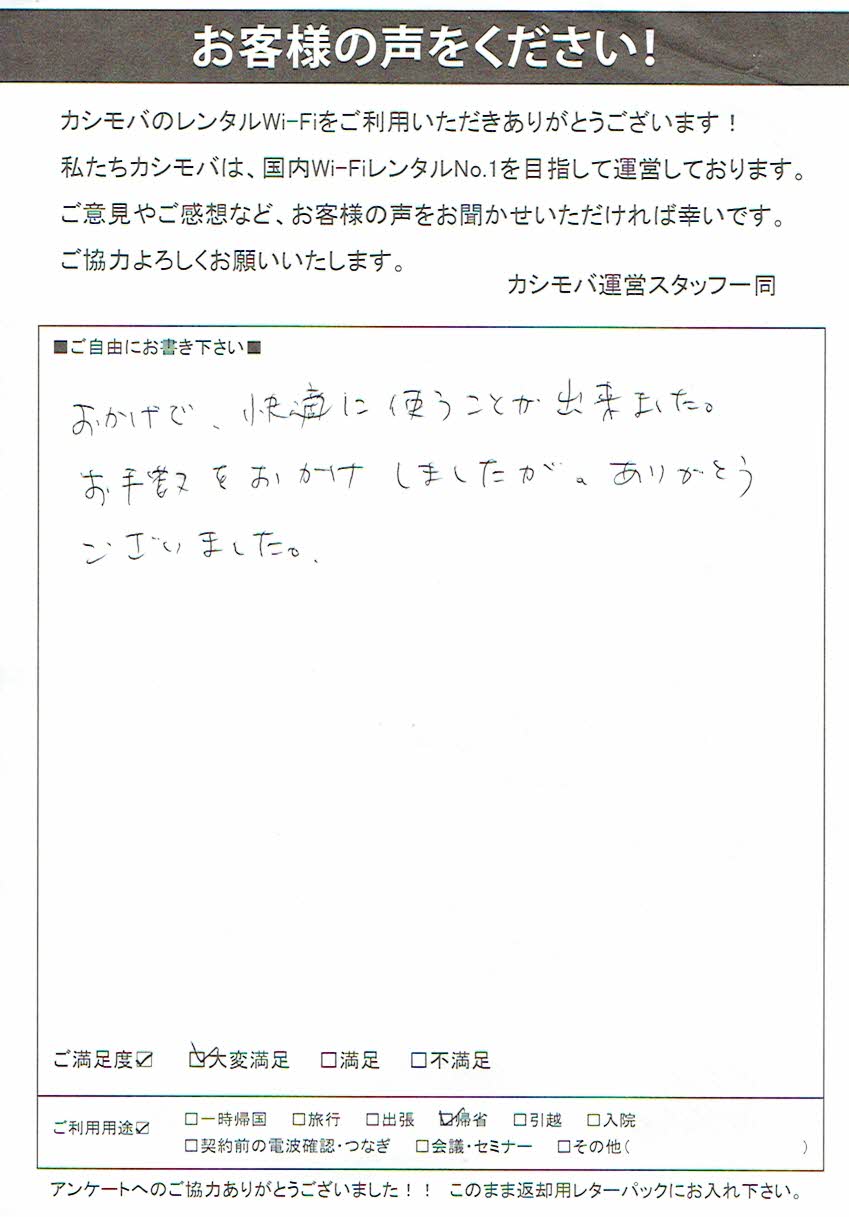 お客様の声をください!
カシモバのレンタルWi-Fiをご利用いただきありがとうございます！
私たちカシモバは、国内Wi-FiレンタルNo.1を目指して運営しております。
ご意見やご感想など、お客様の声をお聞かせいただければ幸いです。
ご協力よろしくお願いいたします。
カシモバ運営スタッフ一同
■ご自由にお書き下さい■
おかげで、快適に使うことが出来ました。
お手数をおかけしましたが。ありがとう
ございました。
ご満足度☑ ☑大変満足 □満足 □不満足
ご利用用途☑ □一時帰国 □旅行 □出張 ☑帰省 □引越 □入院
□契約前の電波確認・つなぎ □会議・セミナー □その他( )
アンケートへのご協力ありがとうございました！！ このまま返却用レターパックにお入れ下さい。